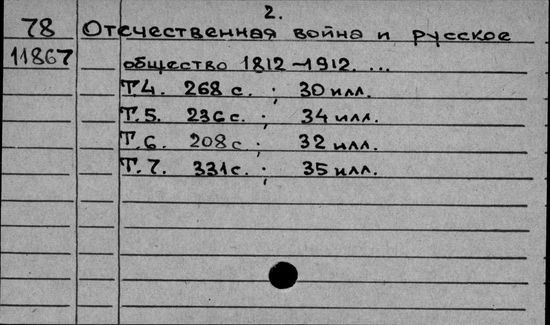 2.
78 Отечественная война и русское
11867 общество 1812-1912. ...
Т.4. 268 с. ; 30 илл.
Т.5. 236 с. ; 34 илл.
Т.6. 208 с ; 32 илл.
Т.7. 331 с. ; 35 илл.